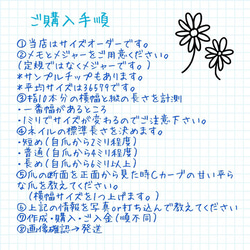 ご購入手順
①当店はサイズオーダーです。
②メモとメジャーをご用意ください。
(定規ではなくメジャーです。)
*サンプルチップもあります。
*平均サイズは36579です。
③指10本分の横幅と縦の長さを計測
・一番幅があるところ
・1ミリでサイズが変わるのでご注意下さい。
④ネイルの標準長さを決めます。
・短め(自爪から2ミリ程度)
・普通(自爪から4ミリ程度)
・長め(自爪から6ミリ以上)
⑤爪の断面を正面から見た時Cカーブの甘い平らな爪を教えてください。
(横幅サイズを1つ上げます。)
⑥上記の情報を写真or打ち込んで教えてください
⑦作成・購入・ご入金(順不同)
⑧画像確認→発送